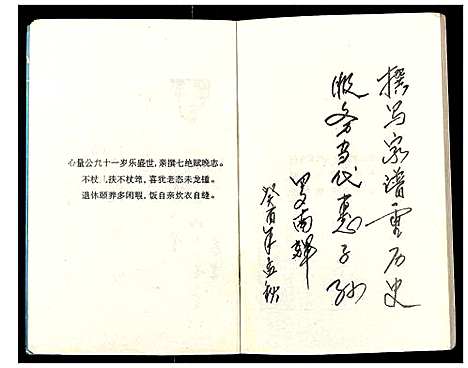 心量公九十一岁乐盛世，亲撰七绝赋晚志。
不杖扶不杖鸠，喜犹老态未龙锺。
退休颐养多闲暇，饭自亲炊衣自缝。
撰写家谱重历史
服务当代惠子孙
罗南辉
癸酉年孟秋